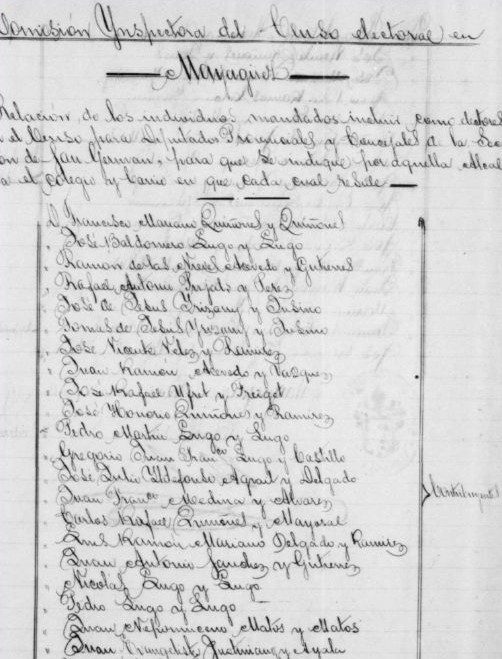 Comisión Ynspectora del Censo electoral en
Mayagüez
Relación de los individuos mandados incluir como electores
el Censo para Diputados Provinciales y Concejales de la Sec
de San German, para que se indique por aquella Alcal
el colegio y barrio en que cada cual reside.
D. Francisco Mariano Quiñones y Quiñones
" José Baldomero Lugo y Lugo
" Ramon de las Nieves Acevedo y Gutierres
" Rafael Antonio Pujals y Perez
" José de Jesus Yrizarry y
" Tomás de Jesus Yrizarry y
" José Vicente Velez y Ramirez
" Juan Ramon Acevedo y Vasquez
" José Rafael y
" José Honorio Quiñones y Ramirez
" Pedro Martin Lugo y Lugo
" Gregorio Juan Franco Lugo y Castillo
" José Julio Yldefonso Agrait y Delgado
" Juan Franco Medina y Alvarez
" Carlos Rafael Quiñones y Mayoral
" Luis Ramon Mariano Delgado y Ramirez
" Juan Antonio Sanchez y Gutierrez
" Nicolas Lugo y Lugo
" Pedro Lugo y Lugo
" Juan Nepomuceno Matos y Matos
" Juan Evangelista y Ayala